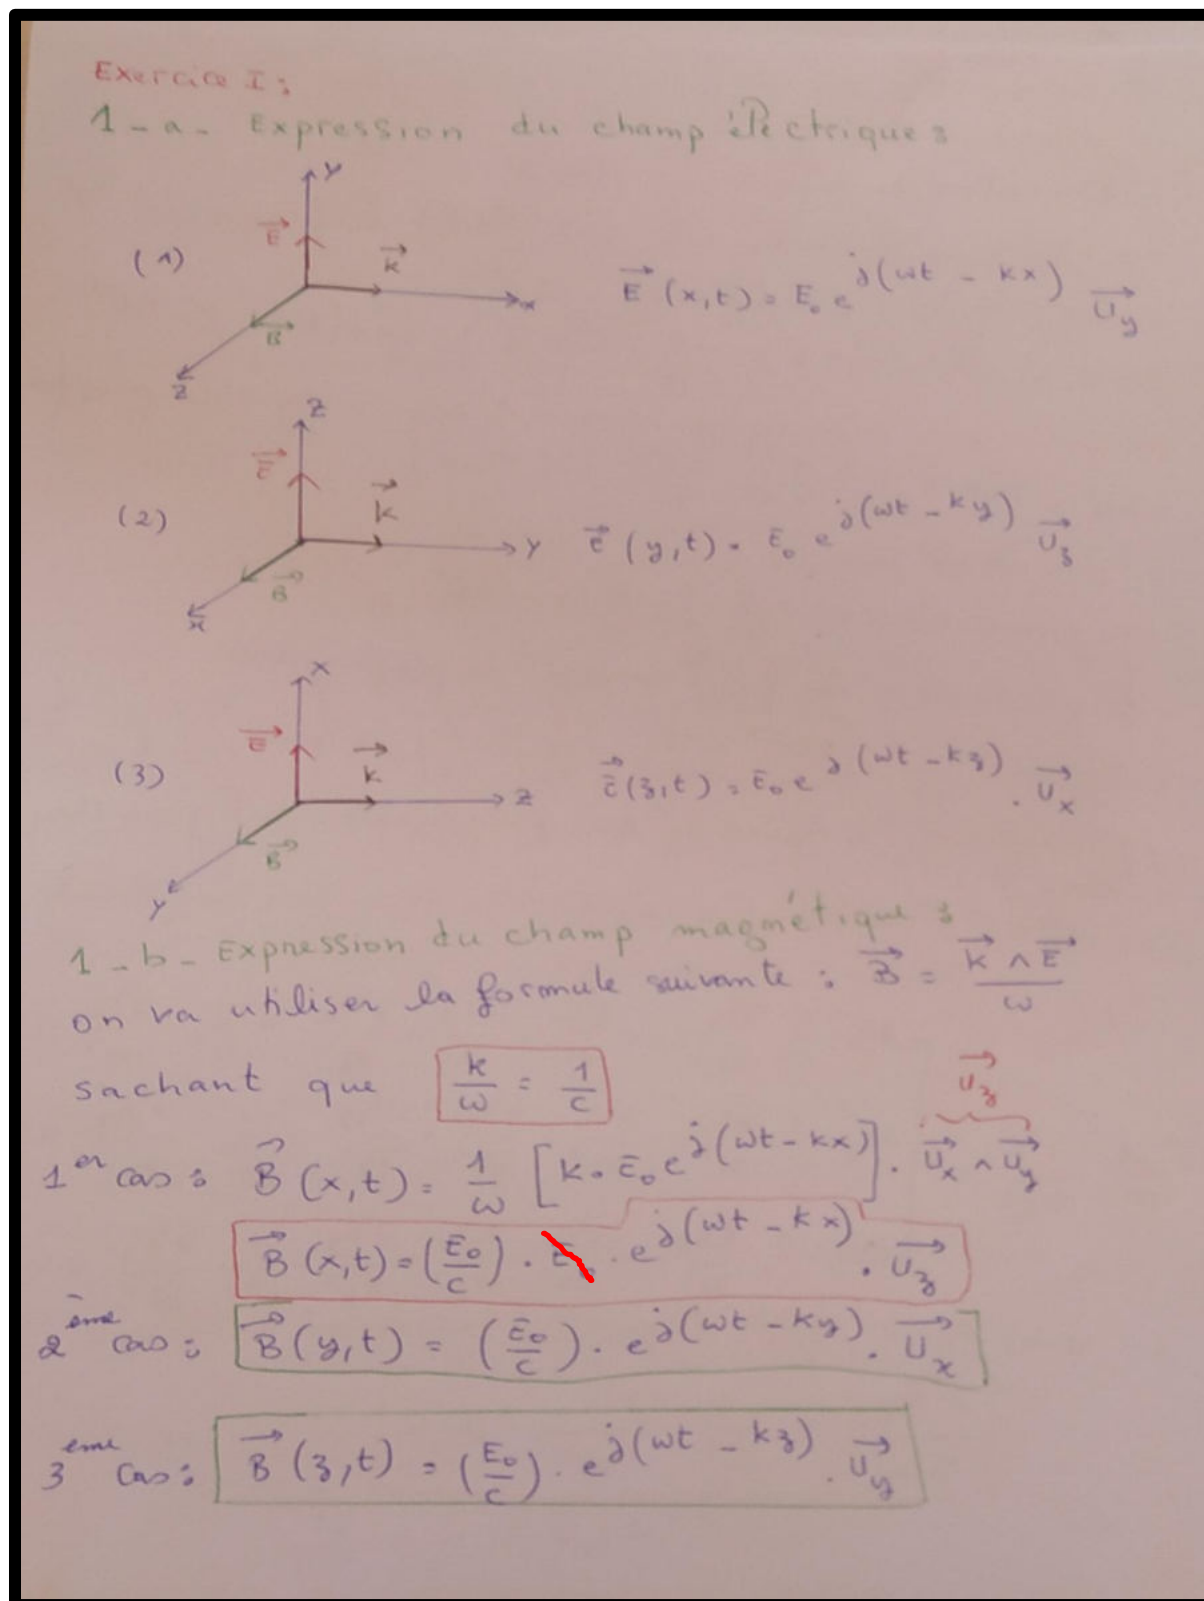 Exercice I :
1 - a - Expression du champ électrique :
Y
E⃗
(1)
k⃗
E⃗ (x,t) = E₀ e^j(ωt - kx) U⃗y
x
B⃗
Z
Z
E⃗
(2)
k⃗
Y
E⃗ (y,t) = E₀ e^j(ωt - ky) U⃗z
B⃗
x
X
E⃗
(3)
k⃗
Z
E⃗(z,t) = E₀ e^j(ωt - kz) . U⃗x
B⃗
Y
1 - b - Expression du champ magnétique :
on va utiliser la formule suivante : B⃗ = k⃗ ∧ E⃗ / ω
sachant que k/ω = 1/c
U⃗z
1er cas : B⃗ (x,t) = 1/ω [k . E₀ e^j(ωt - kx)] . U⃗x ∧ U⃗y
B⃗ (x,t) = (E₀/c) . E₀ . e^j(ωt - kx) . U⃗z
2ème cas : B⃗ (y,t) = (E₀/c) . e^j(ωt - ky) . U⃗x
3eme cas : B⃗ (z,t) = (E₀/c) . e^j(ωt - kz) . U⃗y